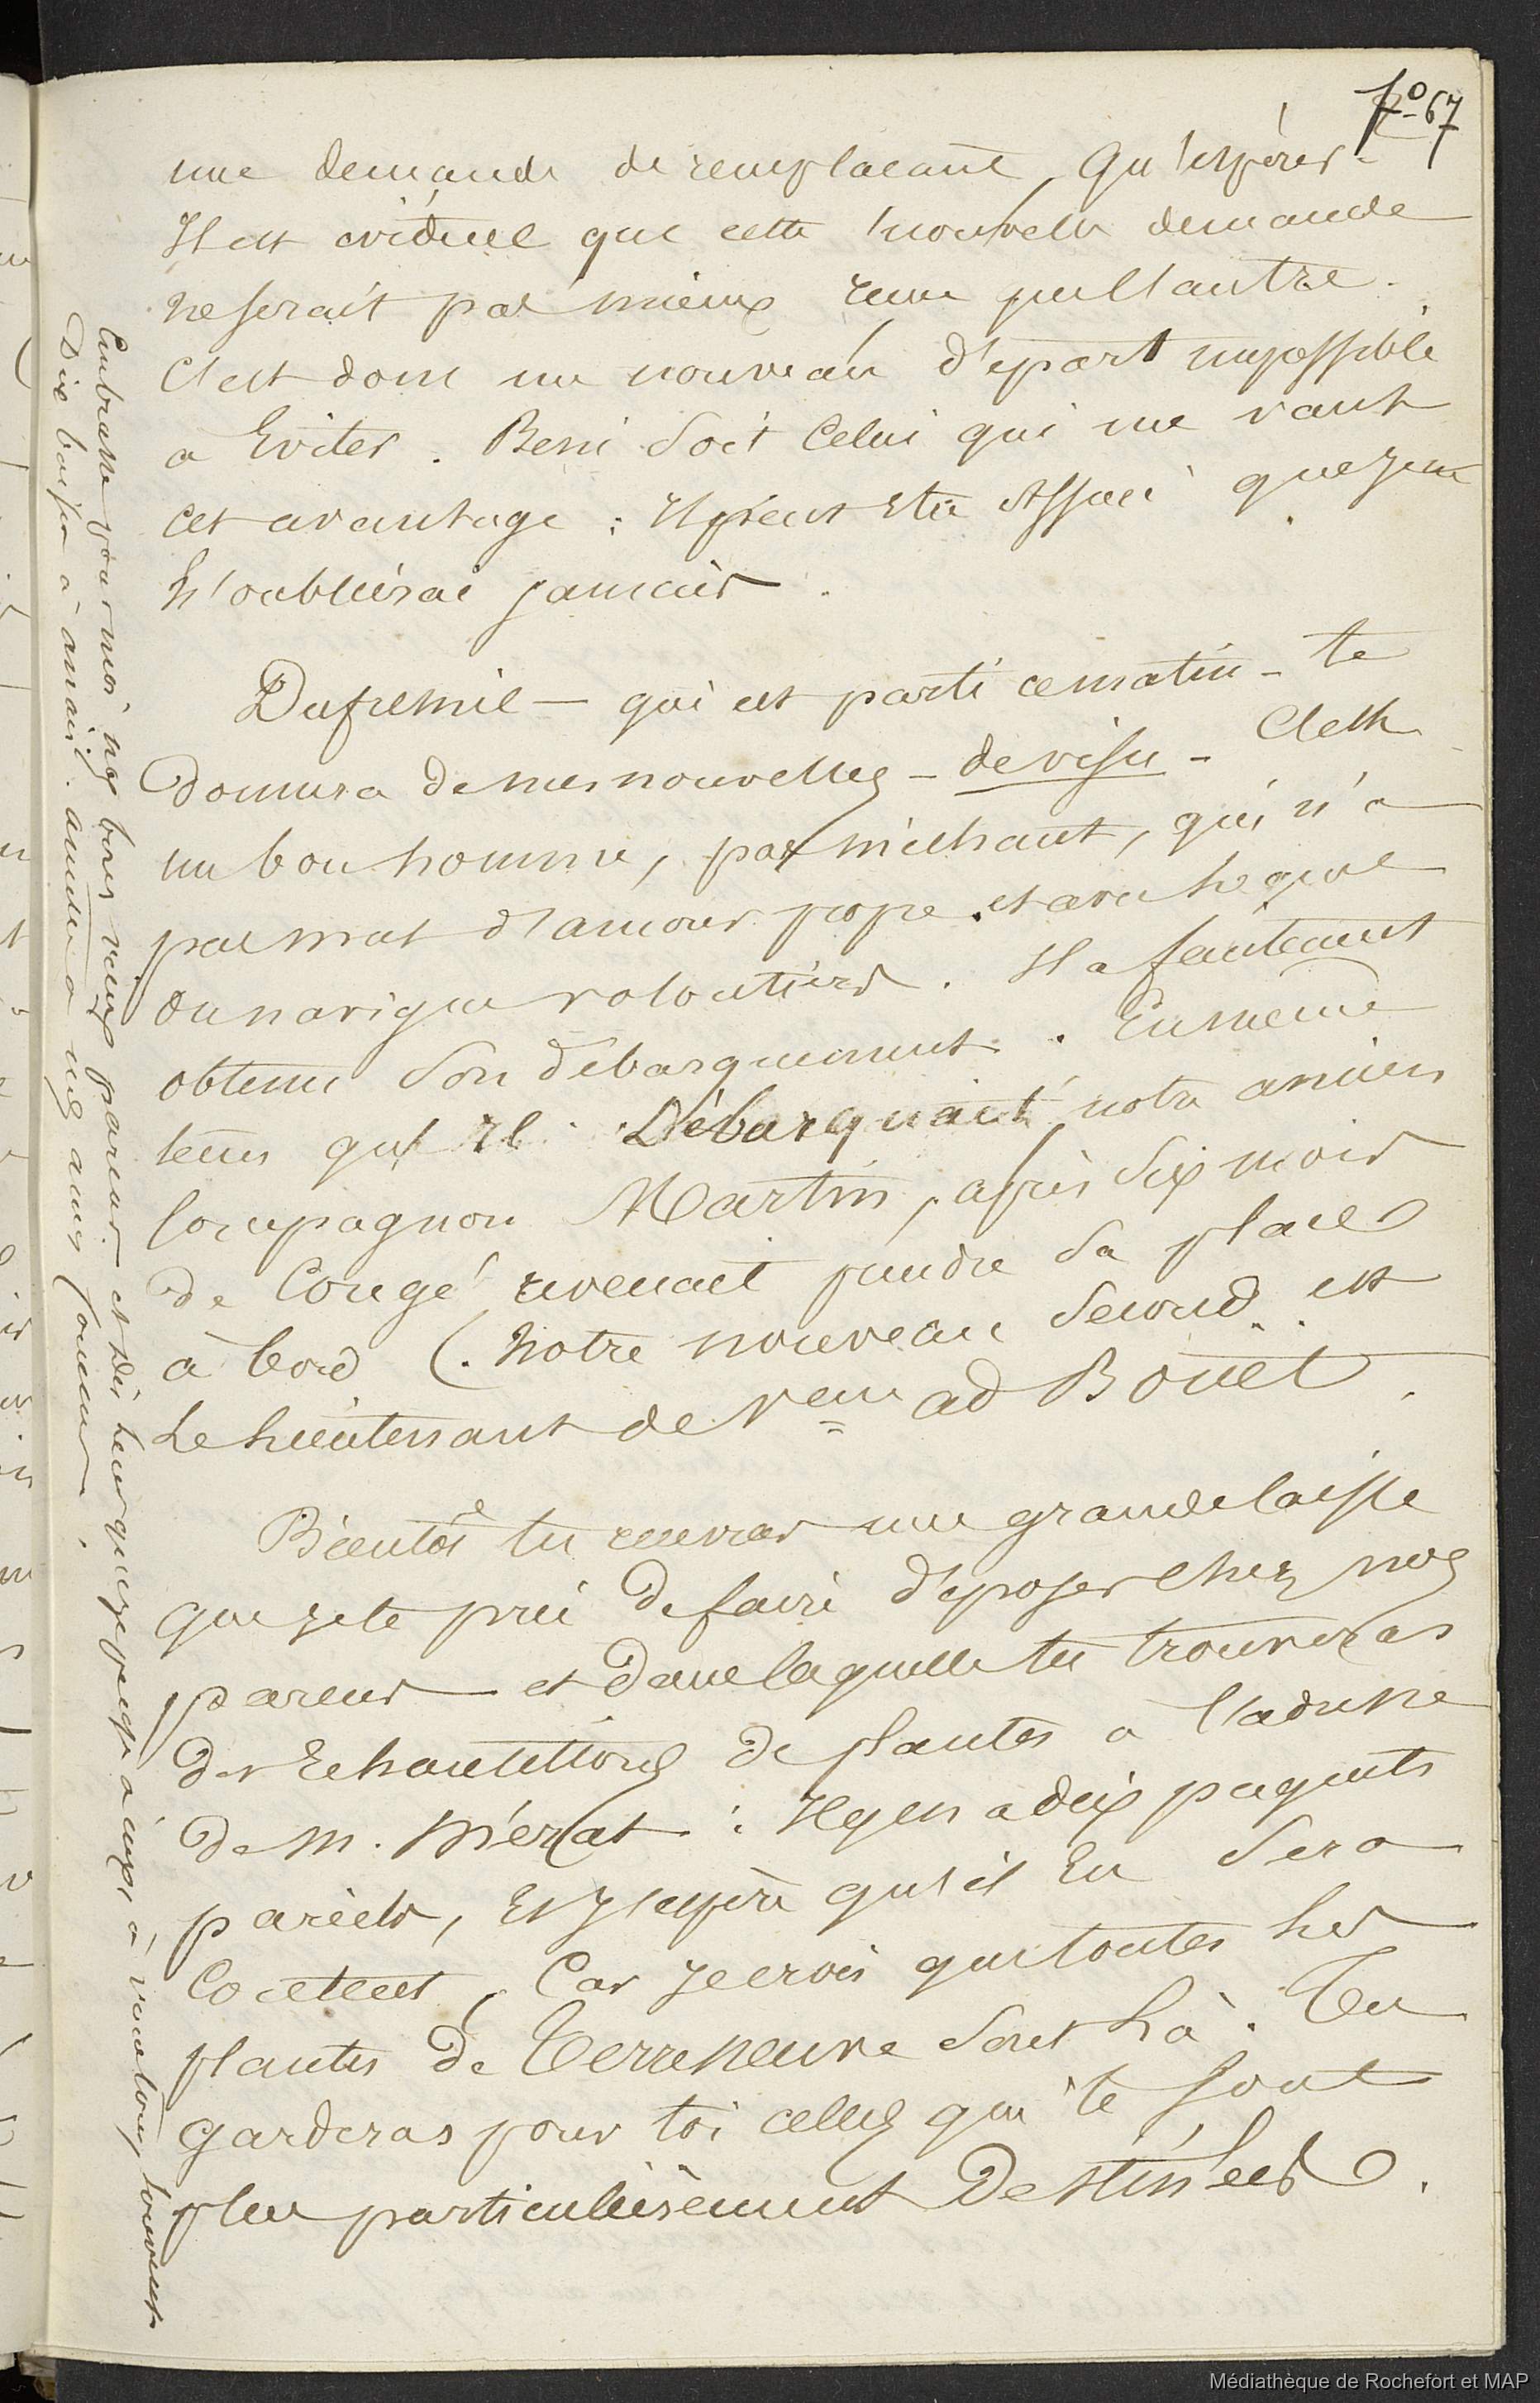 fo 67
une demande de remplaçant. Qu'espérer.
Il est évident que cette nouvelle demande
ne serait pas mieux reçue que l'autre.
C'est donc un nouveau départ impossible
a Eviter. Beni Soit Celui qui me vaut
cet avantage : Il peut être assuré que je ne
l'oublierai jamais.
Dufremil — qui est parti ce matin - te
donnera de mes nouvelles - de visu - C'est
un bon homme, pas méchant, qui n'a
pas mal d'amour propre et avec lequel
on navigue volontiers. Il a
obtenu Son débarquement. En même
tems qu'il Débarquait notre ancien
Compagnon Martin, après Six mois
de Congé revenait prendre Sa place
à bord (. Notre nouveau Second est
Le Lieutenant de Veau ad Bouet.
Bientôt tu recevras une grande caisse
que je te prie de faire déposer chez nos
parens et dans laquelle tu trouveras
des Echantillons de plantes à l'adresse
de M. Mérat : Il y en a dix paquets
pareils, Et j'espère qu'il En Sera
Content, Car je crois que toutes les
plantes de Terreneuve Sont Là. Tu
garderas pour toi celles qui te sont
plus particulièrement Destinées.
Embrasse pour moi nos bons vieux parens et dis leur que je pense à eux à vous tous souvent
Dix baisers à amitiés à nos amis
Médiathèque de Rochefort et MAP